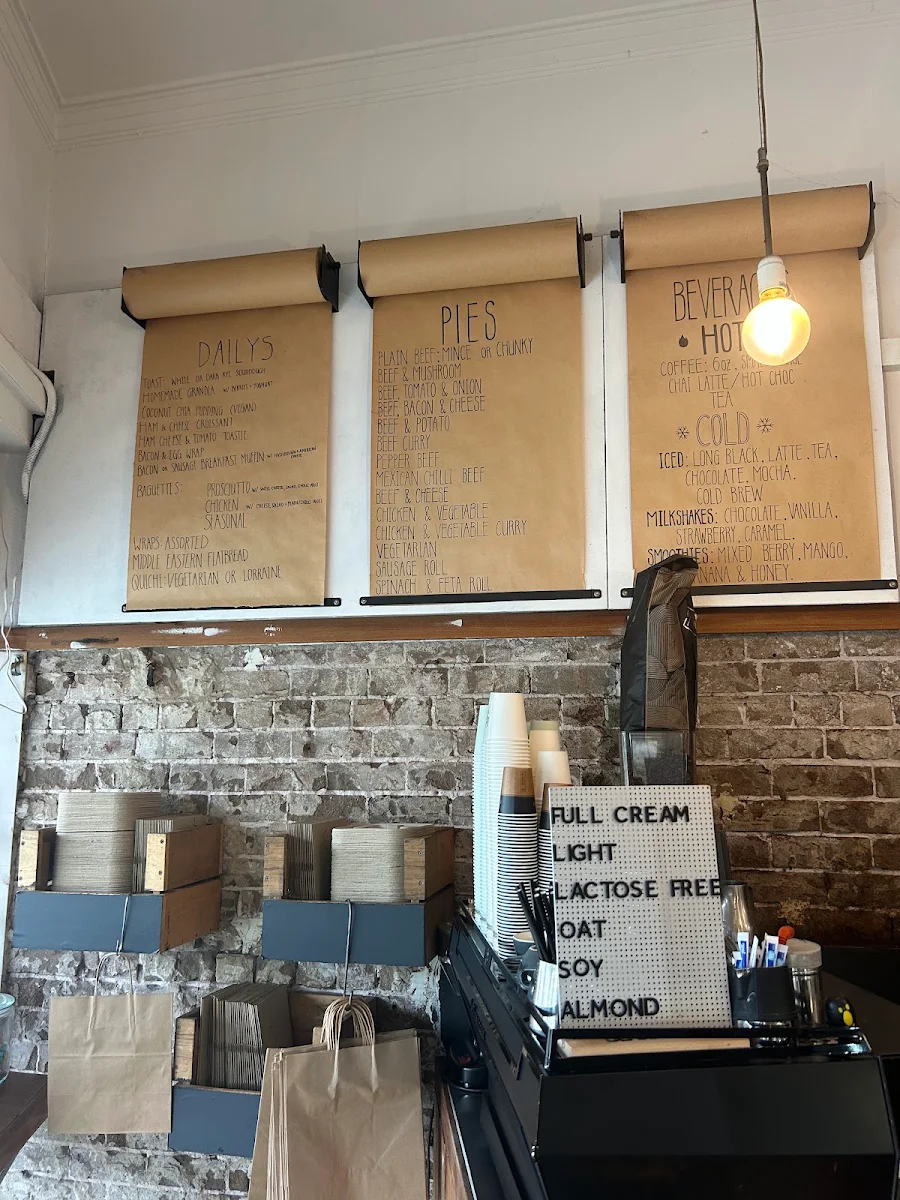 DAILYS
TOAST: WHITE OR DARK RYE SOURDOUGH
HOMEMADE GRANOLA W/ BERRIES + YOGHURT
COCONUT CHIA PUDDING (VEGAN)
HAM & CHEESE CROISSANT
HAM CHEESE & TOMATO TOASTIE
BACON & EGG WRAP
BACON OR SAUSAGE BREAKFAST MUFFIN W/
BAGUETTES: PROSCIUTTO W/
CHICKEN W/
SEASONAL
WRAPS: ASSORTED
MIDDLE EASTERN FLATBREAD
QUICHE: VEGETARIAN OR LORRAINE
PIES
PLAIN BEEF: MINCE OR CHUNKY
BEEF & MUSHROOM
BEEF TOMATO & ONION
BEEF BACON & CHEESE
BEEF & POTATO
BEEF CURRY
PEPPER BEEF
MEXICAN CHILLI BEEF
BEEF & CHEESE
CHICKEN & VEGETABLE
CHICKEN & VEGETABLE CURRY
VEGETARIAN
SAUSAGE ROLL
SPINACH & FETA ROLL
BEVERAG
HOT
COFFEE: 6oz,
CHAI LATTE/HOT CHOC
TEA
COLD
ICED: LONG BLACK, LATTE, TEA,
CHOCOLATE, MOCHA,
COLD BREW
MILKSHAKES: CHOCOLATE, VANILLA,
STRAWBERRY, CARAMEL,
SMOOTHIES: MIXED BERRY, MANGO,
NANA & HONEY.
FULL CREAM
LIGHT
LACTOSE FREE
OAT
SOY
ALMOND